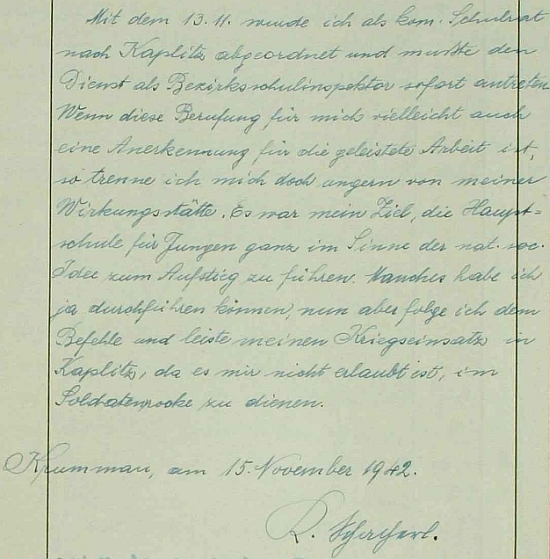 Mit dem 13. 11. wurde ich als kom. Schulrat
nach Kaplitz abgeordnet und mußte den
Dienst als Bezirksschulinspektor sofort antreten.
Wenn diese Berufung für mich vielleicht auch
eine Anerkennung für die geleistete Arbeit ist,
so trenne ich mich doch ungern von meiner
Wirkungsstätte. Es war mein Ziel, die Haupt=
schule für Jungen ganz im Sinne der nat. soc.
Idee zum Aufstieg zu führen. Manches habe ich
ja durchführen können, nun aber folge ich dem
Befehle und leiste meinen Kriegseinsatz in
Kaplitz, da es mir nicht erlaubt ist, im
Soldatenrocke zu dienen.
Krummau, am 15. November 1942.
R.